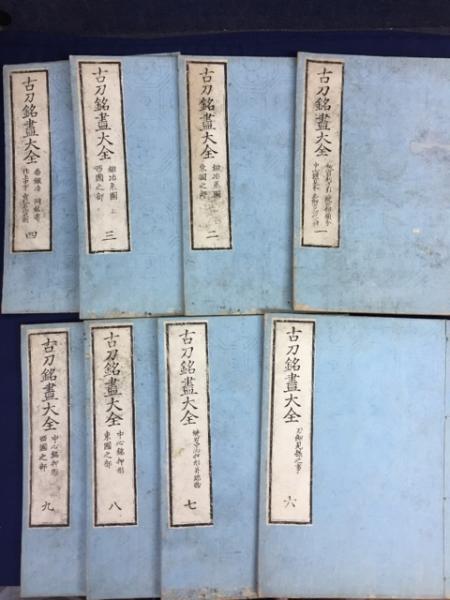 古刀銘盡大全
一
古刀銘盡大全
鍛冶系圖
東國之部
二
古刀銘盡大全
鍛冶系圖 上
西國之部
三
古刀銘盡大全
四
古刀銘盡大全
刀劔見様之事
六
古刀銘盡大全
七
古刀銘盡大全
中心銘押形
東國之部
八
古刀銘盡大全
中心銘押形
西國之部
九